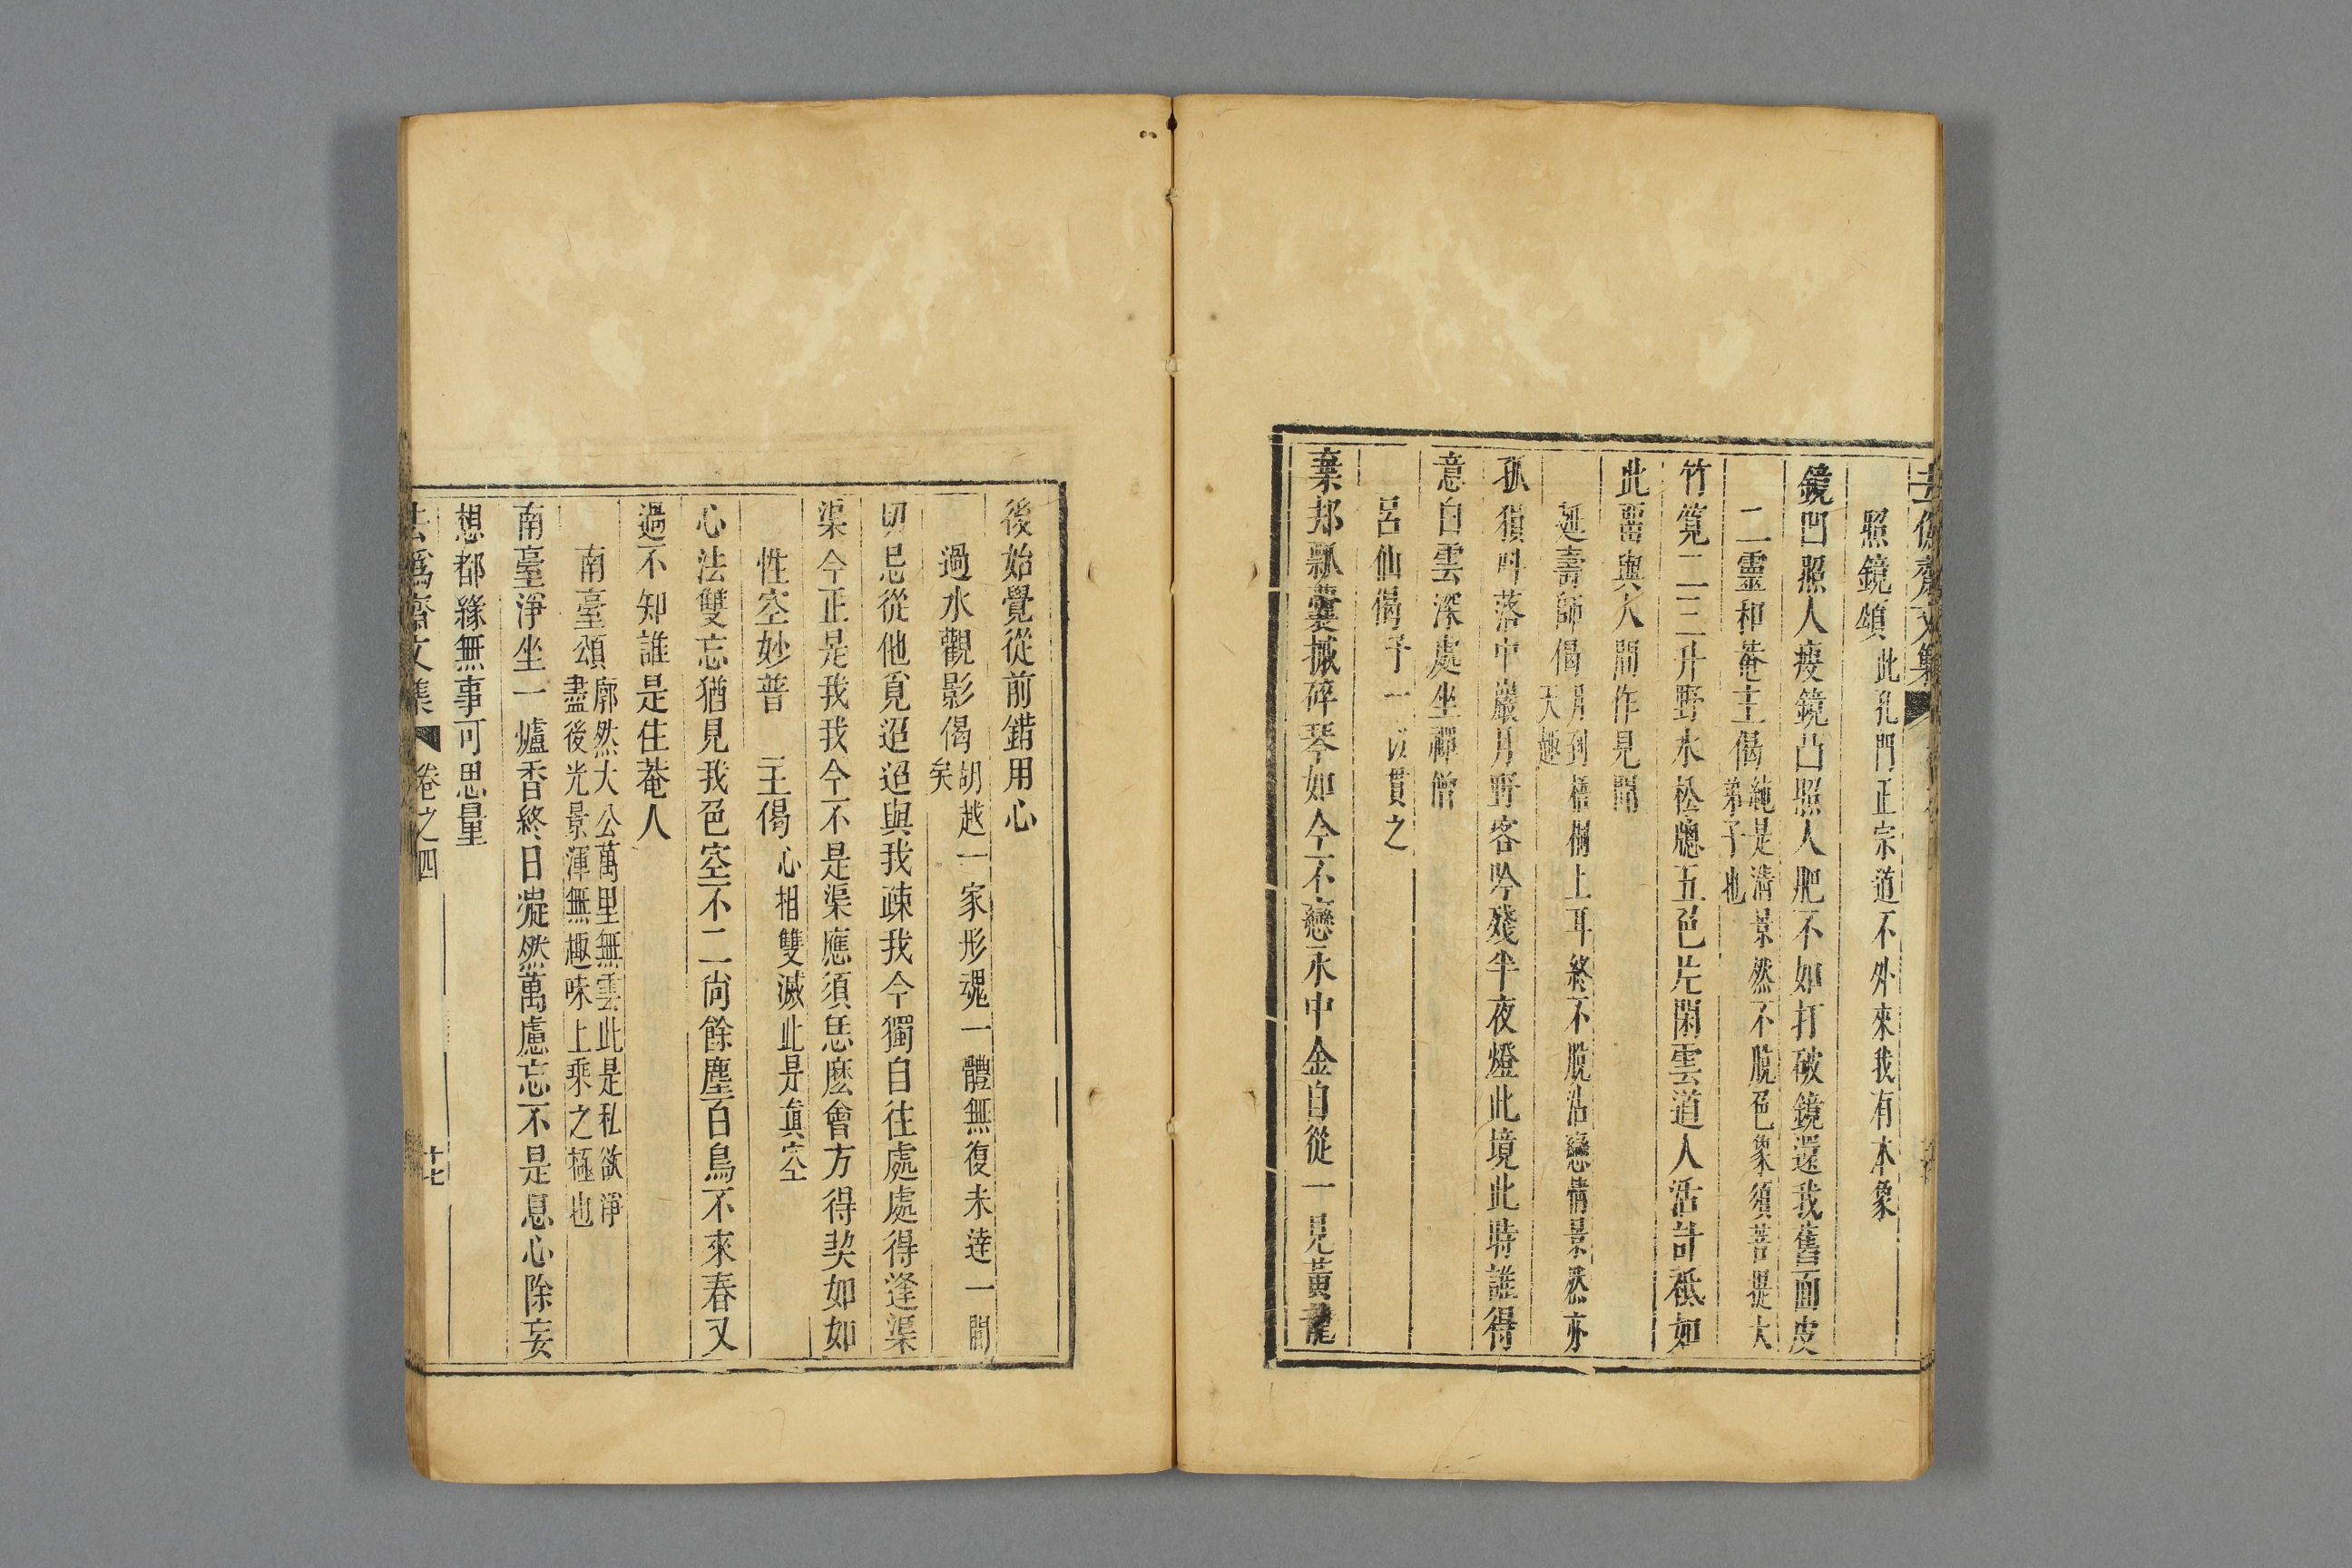 去偽齋文集
照鏡頌 此孔門正宗道不外來我有本象
鏡凹照人瘦鏡凸照人肥不如打破鏡還我舊面皮
二靈和菴主偈 純是清景然不脫色象須菩提大
弟子也
竹筧二三升野水松牕五色片閑雲道人活計秪如
此留與人間作見聞
延壽師偈 月到梧桐上耳終不脫沾戀情景然亦
天趣
孤猿叫落中巖月野客吟殘半夜燈此境此時誰得
意白雲深處坐禪僧
呂仙偈 予一以貫之
棄却瓢囊摵碎琴如今不戀汞中金自從一見黃龍
後始覺從前錯用心
過水觀影偈 胡越一家形魂一體無復未達一間
矣
切忌從他覓迢迢與我疎我今獨自往處處得逢渠
渠今正是我我今不是渠應須恁麼會方得契如如
性空妙普 主偈 心相雙滅此是眞空
心法雙忘猶見我色空不二尚餘塵百鳥不來春又
過不知誰是住菴人
南臺頌 廓然大公萬里無雲此是私欲淨
盡後光景渾無趣味上乘之極也
南臺淨坐一爐香終日凝然萬慮忘不是息心除妄
想都緣無事可思量
去偽齋文集 卷之四 十七